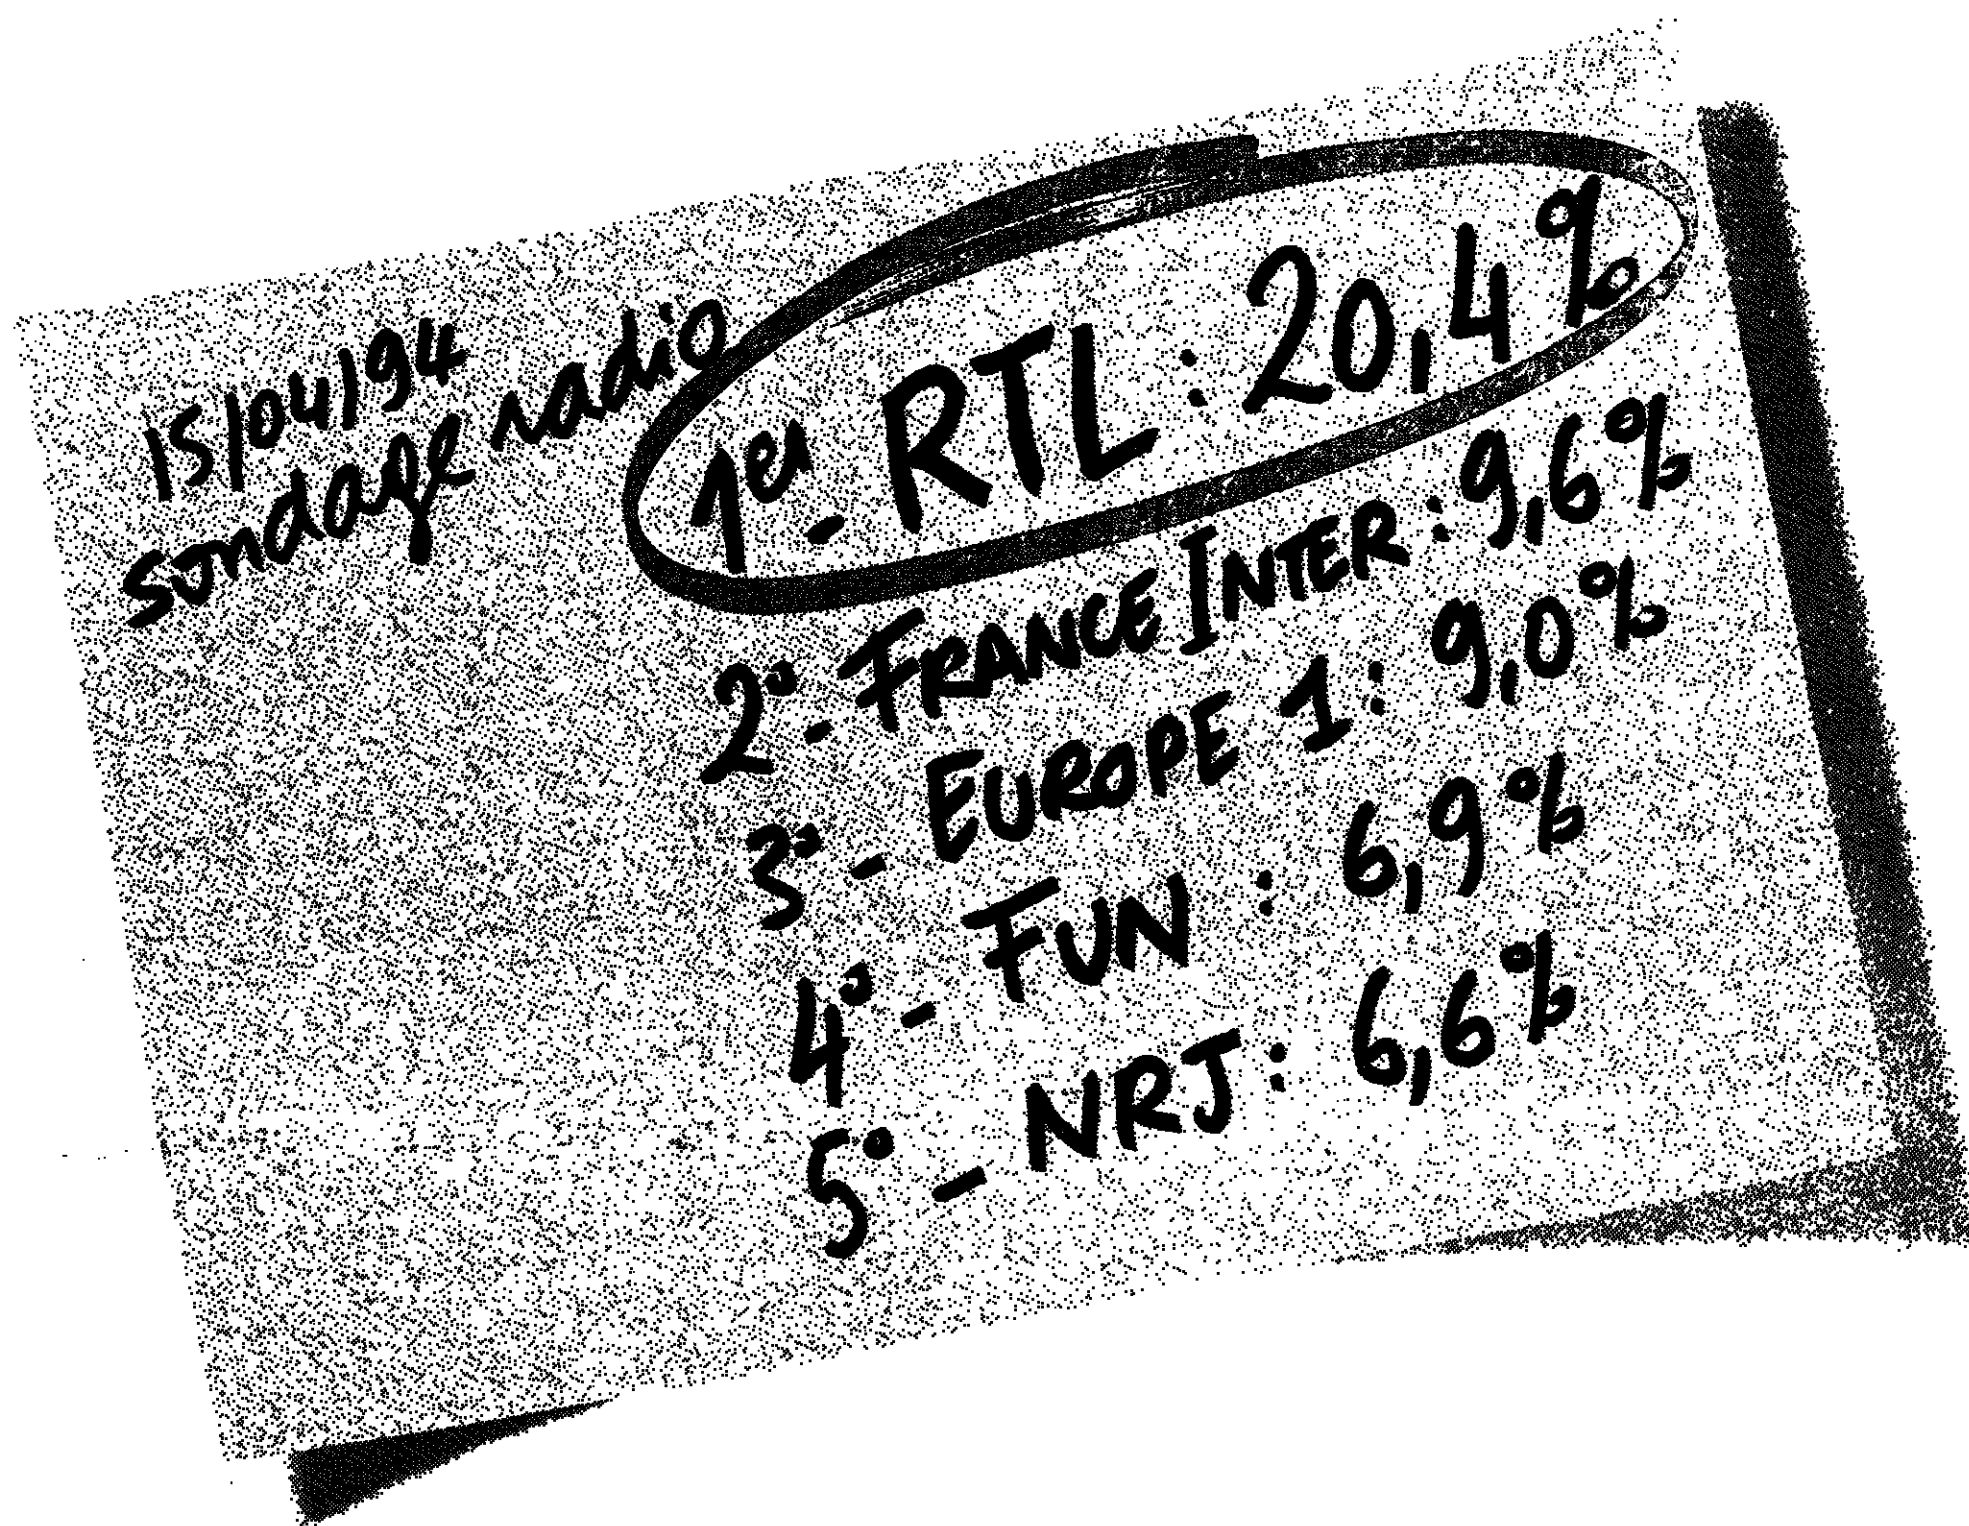 15/04/94
Sondage radio
1er - RTL : 20,4%
2° - FRANCE INTER : 9,6%
3° - EUROPE 1 : 9,0%
4° - FUN : 6,9%
5° - NRJ : 6,6%